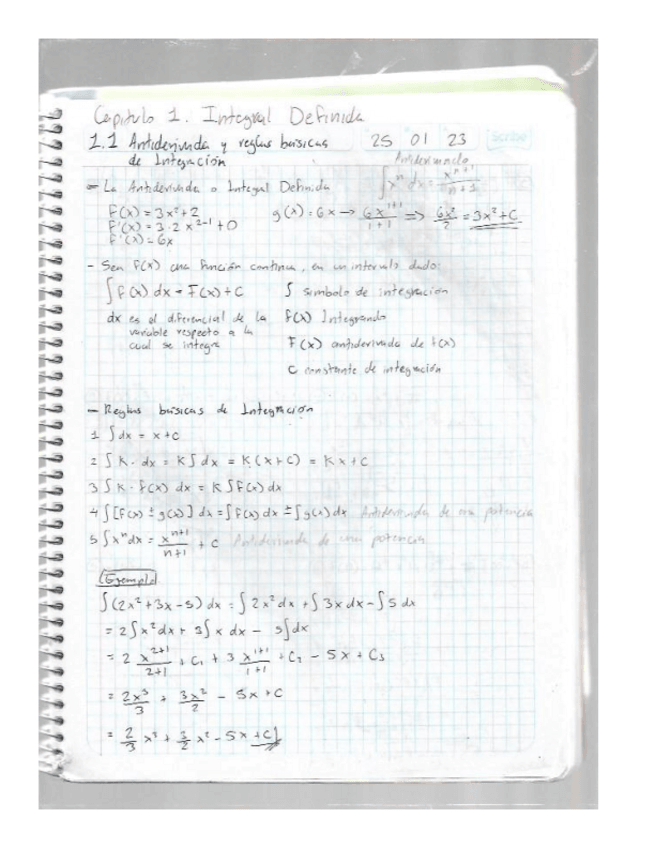 Capitulo 1. Integral Definida
1.1 Antiderivada y reglas basicas de Integración
25 01 23
Antiderivando
∫xⁿ dx = xⁿ⁺¹/n+1
- La Antiderivada o Integral Definida
F(x) = 3x²+2
F'(x) = 3·2 x²⁻¹ + 0
F'(x) = 6x
g(x) = 6x → 6x¹⁺¹/1+1 ⇒ 6x²/2 = 3x²+C
- Sea f(x) una función continua, en un intervalo dado:
∫f(x) dx = F(x)+C
∫ simbolo de integración
dx es el diferencial de la
variable respecto a la
cual se integra
f(x) Integrando
F(x) antiderivada de f(x)
C constante de integración
- Reglas basicas de Integración
1 ∫dx = x+c
2 ∫K· dx = K∫dx = K(x+c) = Kx+c
3 ∫K· f(x) dx = K∫f(x)dx
4 ∫[f(x) ± g(x)] dx = ∫f(x)dx ± ∫g(x)dx Antiderivada de una potencia
5 ∫xⁿdx = xⁿ⁺¹/n+1 + c Antiderivada de una potencia
Ejemplo
∫(2x²+3x-5)dx = ∫2x²dx + ∫3xdx - ∫5dx
= 2∫x²dx + 3∫x dx - 5∫dx
= 2 x²⁺¹/2+1 + C₁ + 3 x¹⁺¹/1+1 + C₂ - 5x + C₃
= 2x³/3 + 3x²/2 - 5x + C
= 2/3 x³ + 3/2 x² - 5x + C